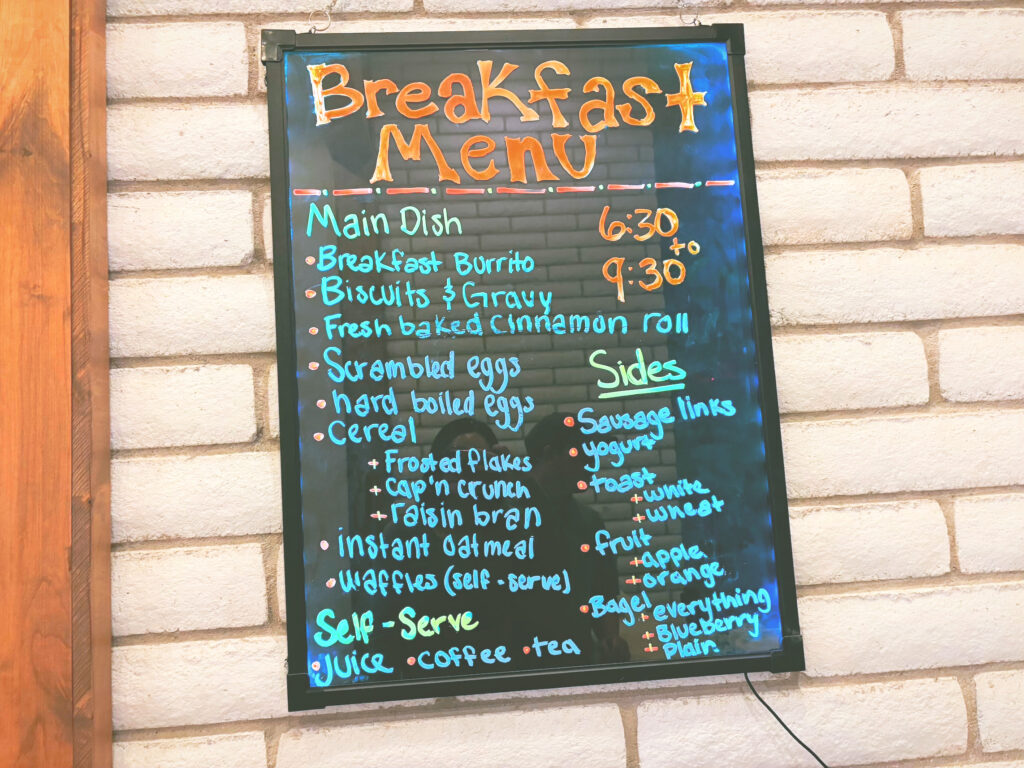 Breakfast
Menu
Main Dish
• Breakfast Burrito
• Biscuits & Gravy
• Fresh baked Cinnamon roll
• Scrambled eggs
• hard boiled eggs
• Cereal
+ Frosted flakes
+ cap'n crunch
+ raisin bran
• instant oatmeal
• waffles (self-serve)
6:30
to
9:30
Sides
• Sausage links
• yogurt
• toast
+ white
+ wheat
• fruit
+ apple
+ orange
• Bagel + everything
+ Blueberry
+ Plain
Self-Serve
• juice • coffee • tea